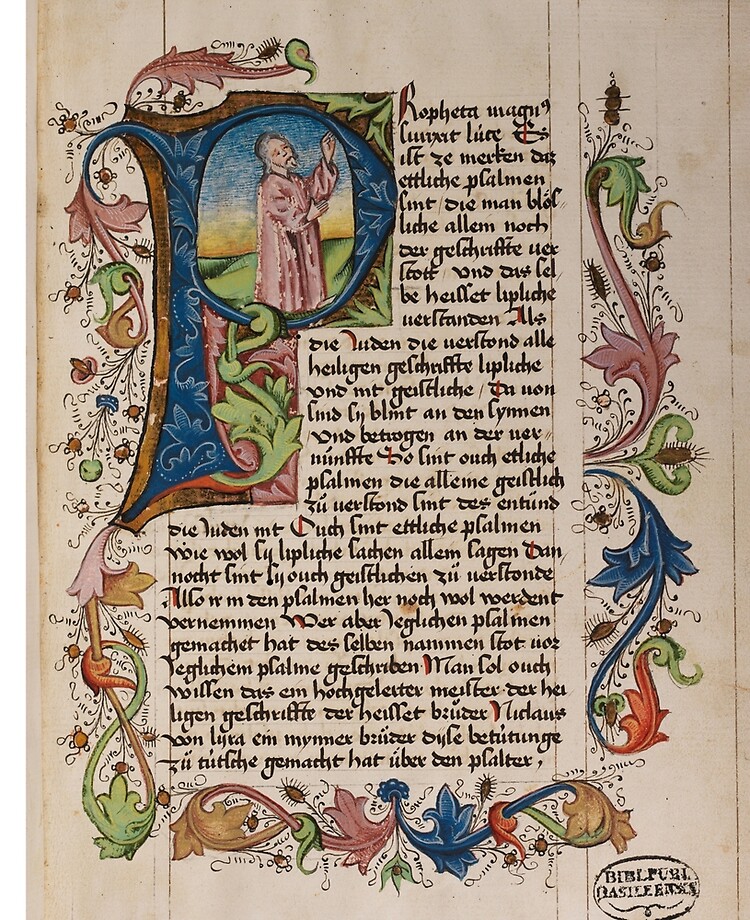 Propheta magnus
surrexit luce Es
ist ze merken daz
ettliche psalmen
sint / die man blos/
liche allem noch
der geschriffte ver
stott / vnd das sel
be heisset lipliche
verstanden Als
die Juden die verstond alle
heiligen geschriffte lipliche
vnd nit geistliche / Da von
sind sy blint an den synnen
vnd betrogen an der ver//
nunffte So sint ouch etliche
psalmen die alleine geistlich
zů verstond sint des entůnd
die Juden nit Ouch sint ettliche psalmen
wie wol sy lipliche sachen allem sagen Dan
nocht sint sy ouch geistlichen zů verstonde
Also ir in den psalmen her noch wol werdent
vernemmen Wer aber Jeglichen psalmen
gemachet hat des selben nammen stot vor
Jeglichem psalme geschriben Man sol ouch
wissen das ein hochgelerter meister der hei
ligen geschriffte der heisset brůder Niclaus
von lyra ein mynner brůder dyse betútunge
zů tútsche gemacht hat über den psalter,
BIBL. PUBL.
BASILEENSIS